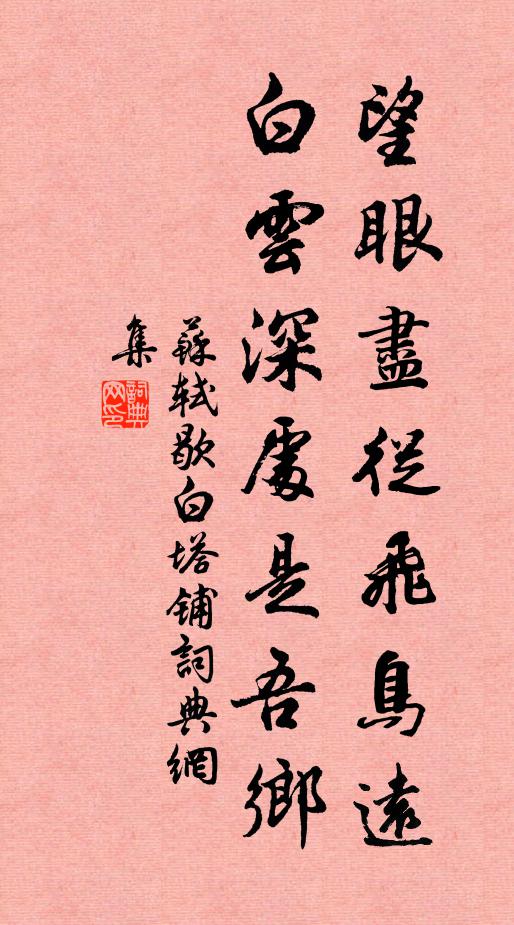 望眼盡從飛鳥遠
白雲深處是吾鄉
蘇軾歇白塔鋪詞典網
集
詞典
网印